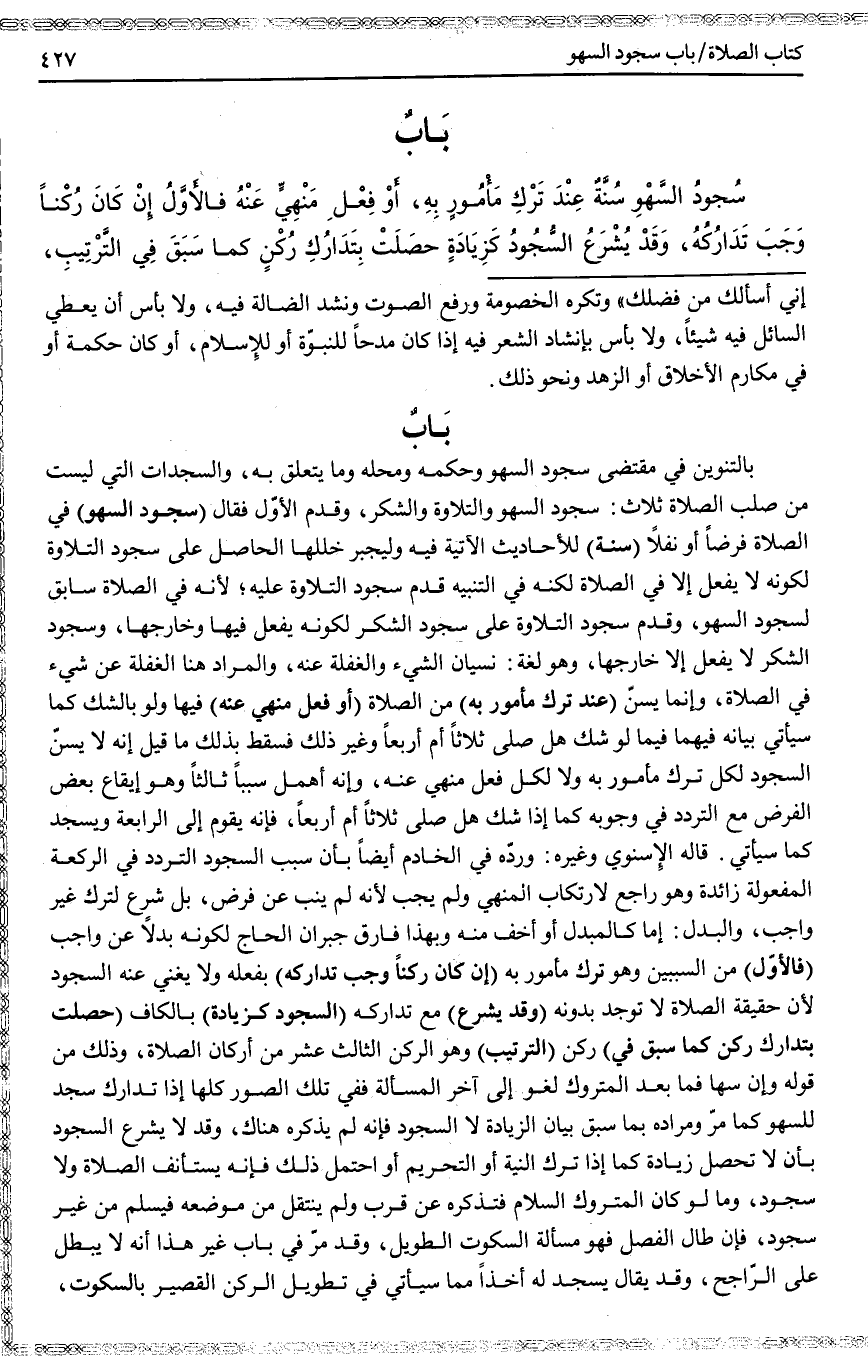 كتاب الصلاة/ باب سجود السهو
٤٢٧
بَابٌ
سُجودُ السَّهْوِ سُنَّةٌ عِنْدَ تَرْكِ مَأْمُورٍ بِهِ، أَوْ فِعْلِ مَنْهِيٍّ عَنْهُ فَالأَوَّلُ إِن كَانَ رُكْناً
وَجَبَ تَدَارُكُهُ، وَقَدْ يُشْرَعُ السُّجُودُ كَزِيَادَةٍ حصَلَتْ بِتَدَارُكِ رُكْنٍ كما سَبَقَ فِي التَّرْتِيبِ،
إني أسألك من فضلك» وتكره الخصومة ورفع الصوت ونشد الضالة فيه، ولا بأس أن يعطي
السائل فيه شيئاً، ولا بأس بإنشاد الشعر فيه إذا كان مدحاً للنبوّة أو للإسلام، أو كان حكمة أو
في مكارم الأخلاق أو الزهد ونحو ذلك.
بَابٌ
بالتنوين في مقتضى سجود السهو وحكمه ومحله وما يتعلق به، والسجدات التي ليست
من صلب الصلاة ثلاث: سجود السهو والتلاوة والشكر، وقدم الأوّل فقال (سجود السهو) في
الصلاة فرضاً أو نفلًا (سنة) للأحاديث الآتية فيه وليجبر خللها الحاصل على سجود التلاوة
لكونه لا يفعل إلا في الصلاة لكنه في التنبيه قدم سجود التلاوة عليه؛ لأنه في الصلاة سابق
لسجود السهو، وقدم سجود التلاوة على سجود الشكر لكونه يفعل فيها وخارجها، وسجود
الشكر لا يفعل إلا خارجها، وهو لغة: نسيان الشيء والغفلة عنه، والمراد هنا الغفلة عن شيء
في الصلاة، وإنما يسنّ (عند ترك مأمور به) من الصلاة (أو فعل منهي عنه) فيها ولو بالشك كما
سيأتي بيانه فيهما فيما لو شك هل صلى ثلاثاً أم أربعاً وغير ذلك فسقط بذلك ما قيل إنه لا يسنّ
السجود لكل ترك مأمور به ولا لكل فعل منهي عنه، وإنه أهمل سبباً ثالثاً وهو إيقاع بعض
الفرض مع التردد في وجوبه كما إذا شك هل صلى ثلاثاً أم أربعاً، فإنه يقوم إلى الرابعة ويسجد
كما سيأتي. قاله الإسنوي وغيره: وردّه في الخادم أيضاً بأن سبب السجود التردد في الركعة
المفعولة زائدة وهو راجع لارتكاب المنهي ولم يجب لأنه لم ينب عن فرض، بل شرع لترك غير
واجب، والبدل: إما كالمبدل أو أخف منه وبهذا فارق جبران الحاج لكونه بدلًا عن واجب
(فالأوّل) من السببين وهو ترك مأمور به (إن كان ركناً وجب تداركه) بفعله ولا يغني عنه السجود
لأن حقيقة الصلاة لا توجد بدونه (وقد يشرع) مع تداركه (السجود كزيادة) بالكاف (حصلت
بتدارك ركن كما سبق في) ركن (الترتيب) وهو الركن الثالث عشر من أركان الصلاة، وذلك من
قوله وإن سها فما بعد المتروك لغو إلى آخر المسألة ففي تلك الصور كلها إذا تدارك سجد
للسهو كما مرّ ومراده بما سبق بيان الزيادة لا السجود فإنه لم يذكره هناك، وقد لا يشرع السجود
بأن لا تحصل زيادة كما إذا ترك النية أو التحريم أو احتمل ذلك فإنه يستأنف الصلاة ولا
سجود، وما لو كان المتروك السلام فتذكره عن قرب ولم ينتقل من موضعه فيسلم من غير
سجود، فإن طال الفصل فهو مسألة السكوت الطويل، وقد مرّ في باب غير هذا أنه لا يبطل
على الرّاجح، وقد يقال يسجد له أخذاً مما سيأتي في تطويل الركن القصير بالسكوت،